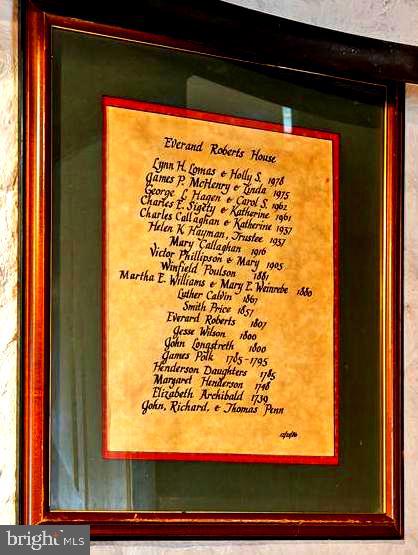 Everand Roberts House
Lynn H. Lomas & Holly S. 1978
James P. McHenry & Linda 1975
George L. Hagen & Carol S. 1962
Charles E. Sigety & Katherine 1961
Charles Callaghan & Katherine 1937
Helen K. Hayman, Trustee 1937
Mary Callaghan 1916
Victor Phillipson & Mary 1905
Winfield Poulson 1887
Martha E. Williams & Mary E. Weinrebe 1880
Luther Calvin 1867
Smith Price 1857
Everard Roberts 1807
Jesse Wilson 1800
John Longstreth 1800
James Polk 1785-1795
Henderson Daughters 1785
Margaret Henderson 1748
Elizabeth Archibald 1739
John, Richard, & Thomas Penn
bright MLS